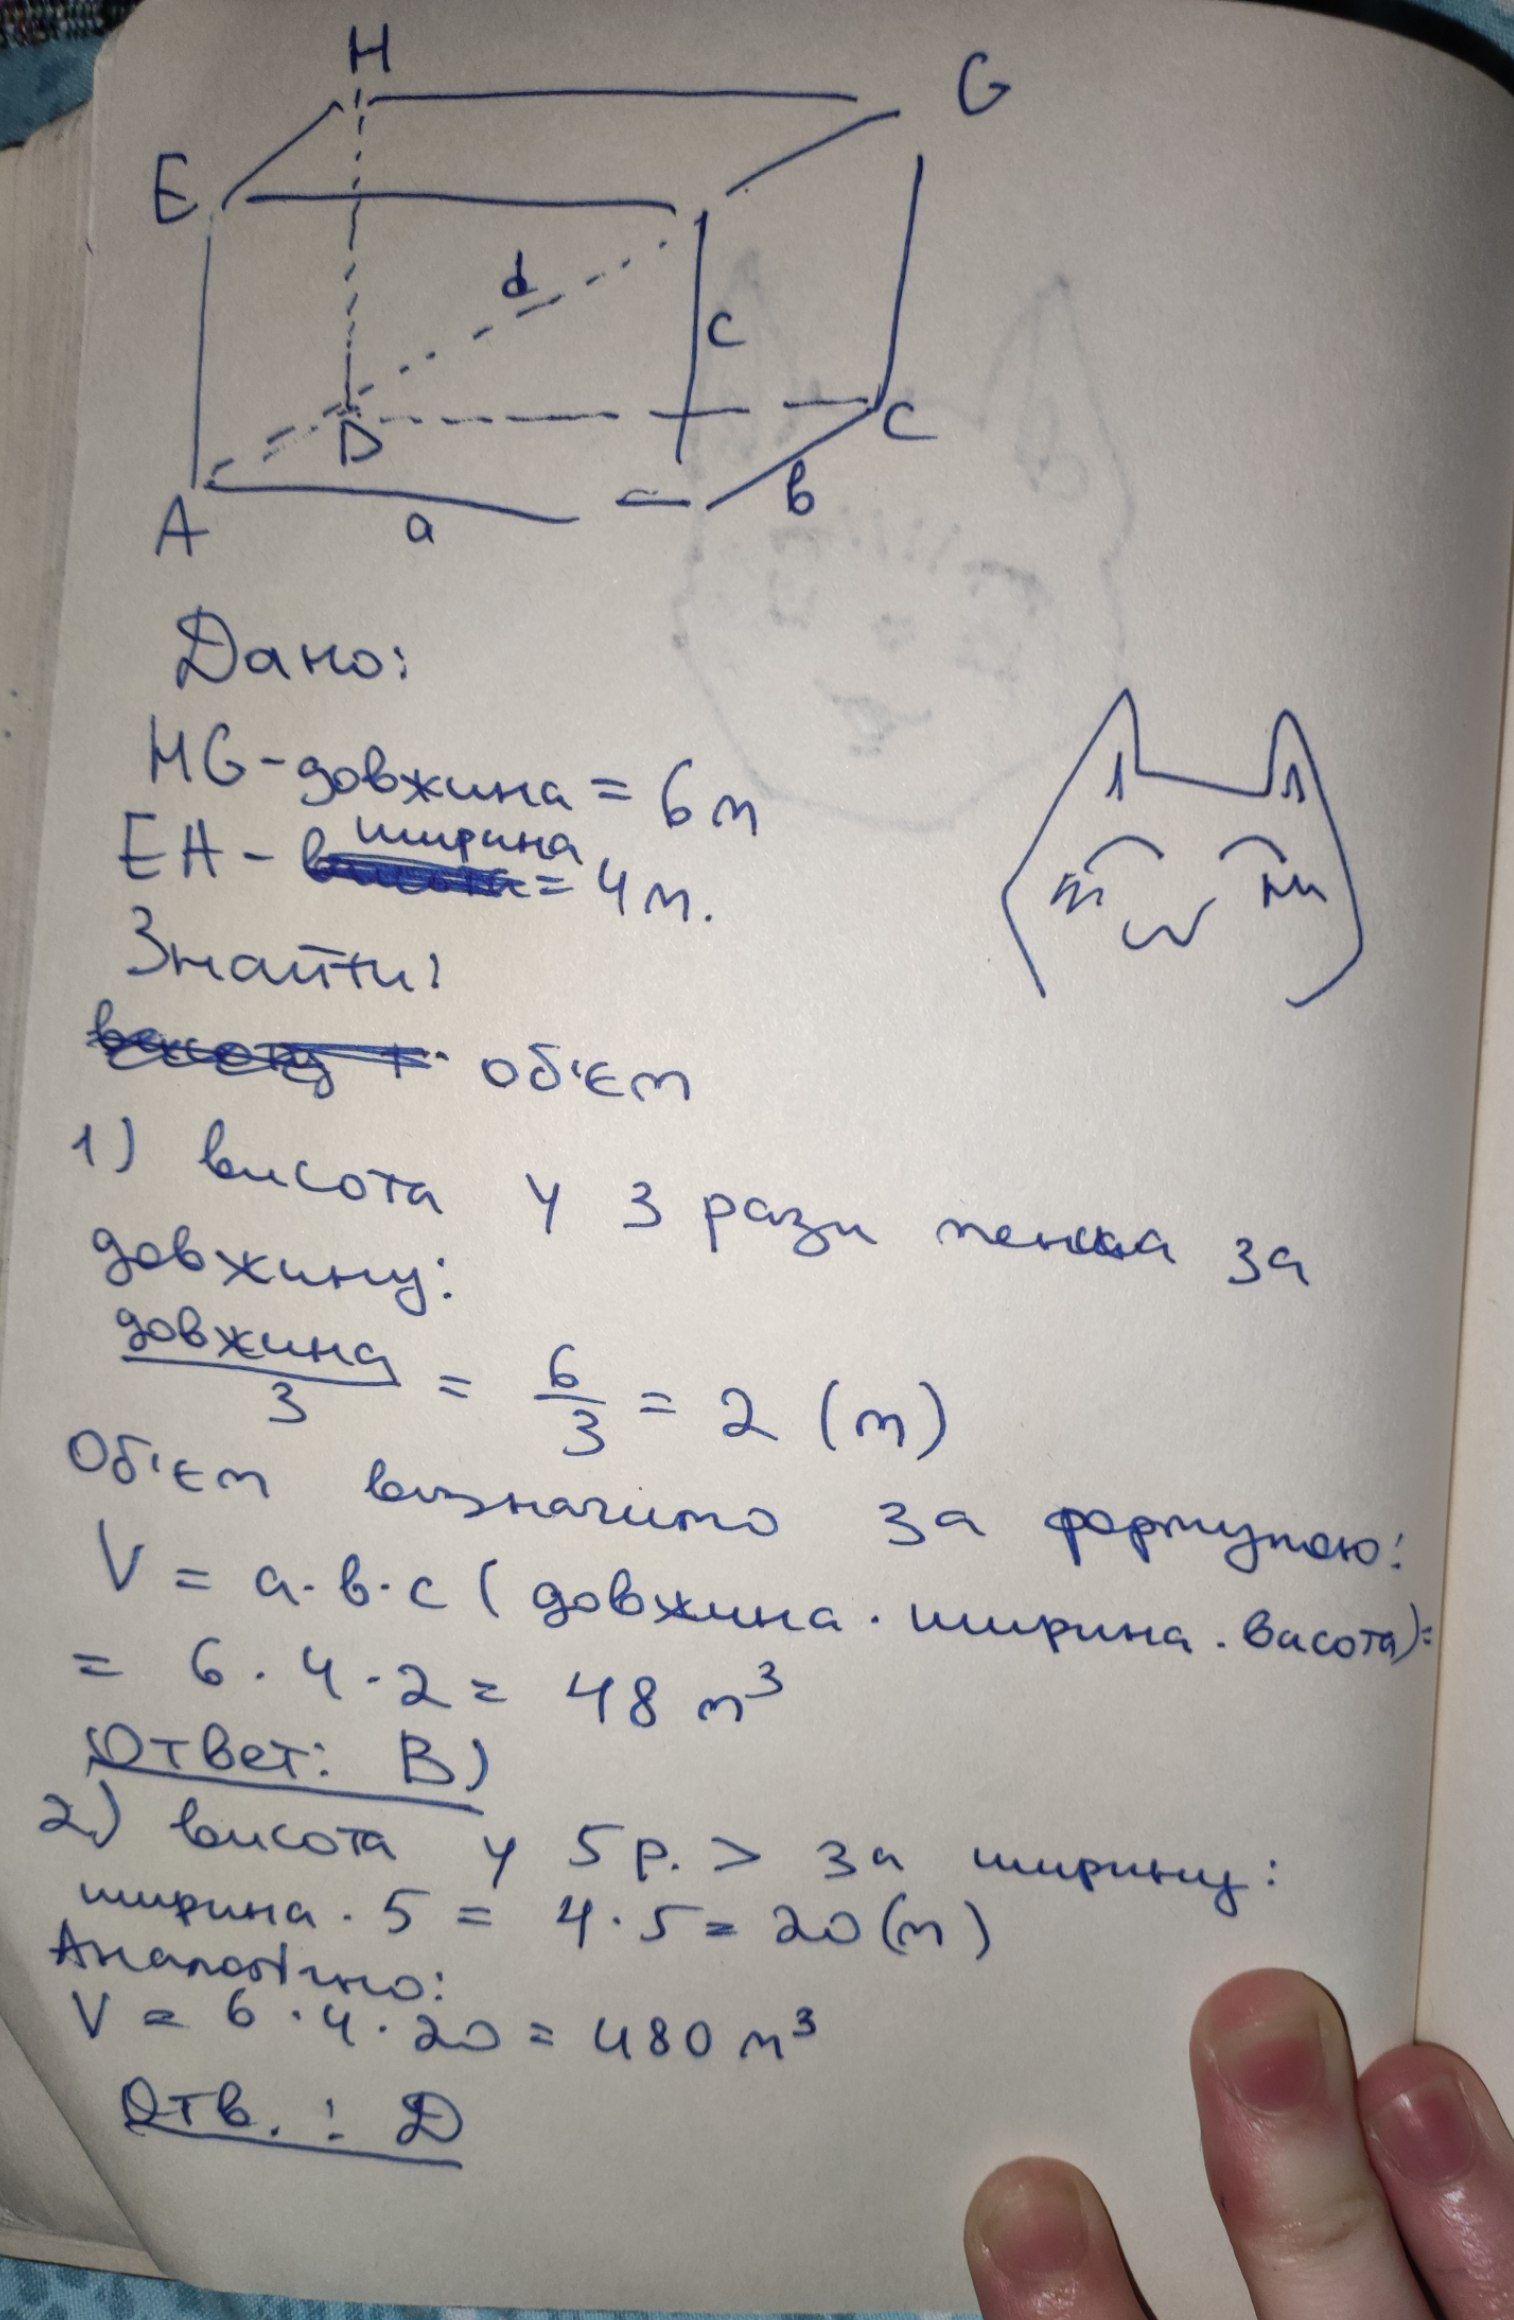 H
G
E
d
c
D
C
A
a
b
Дано:
HG - довжина = 6 м
EH - ширина = 4 м.
Знайти:
об'єм
1) висота у 3 рази менша за
довжину:
довжина
3
= 6/3 = 2 (м)
Об'єм визначимо за формулою:
V = a · b · c ( довжина · ширина · висота) =
= 6 · 4 · 2 = 48 м³
Ответ: В)
2) висота у 5 р. > за ширину:
ширина · 5 = 4 · 5 = 20 (м)
Аналогічно:
V = 6 · 4 · 20 = 480 м³
Отв. : Д